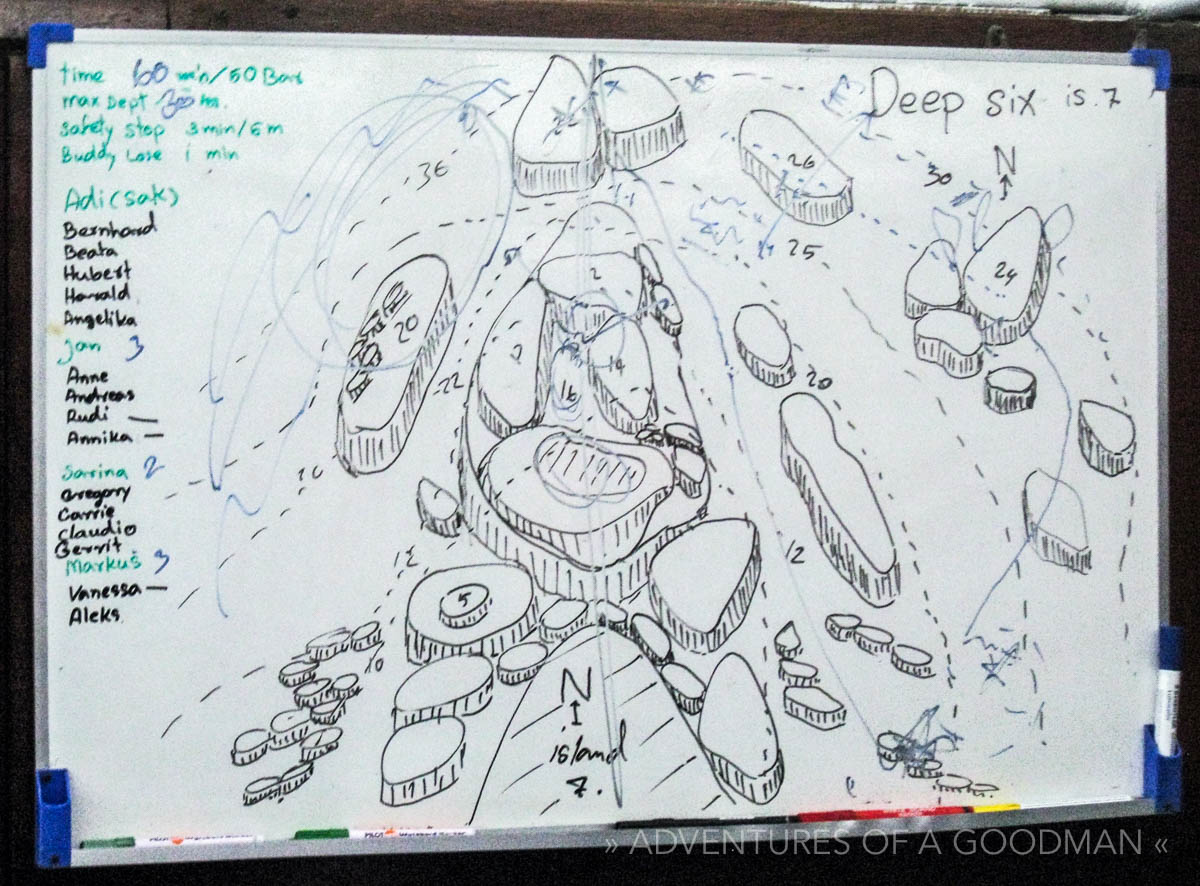 time 60 min/50 Bar
max Dept 30 m.
safety stop 3 min/5m
Buddy Lose 1 min
Adi (sak)
Bernhard
Beata
Hubert
Harald
Angelika
Jan 3
Anne
Andreas
Rudi —
Annika —
Sarina 2
Gregory
Carrie
Claudio
Gerrit
Markus 3
Vanessa —
Aleks.
Deep six is. 7
N
36
26
30
25
24
2
20
22
7
14
16
20
12
12
5
10
N
island
7.
» ADVENTURES OF A GOODMAN «